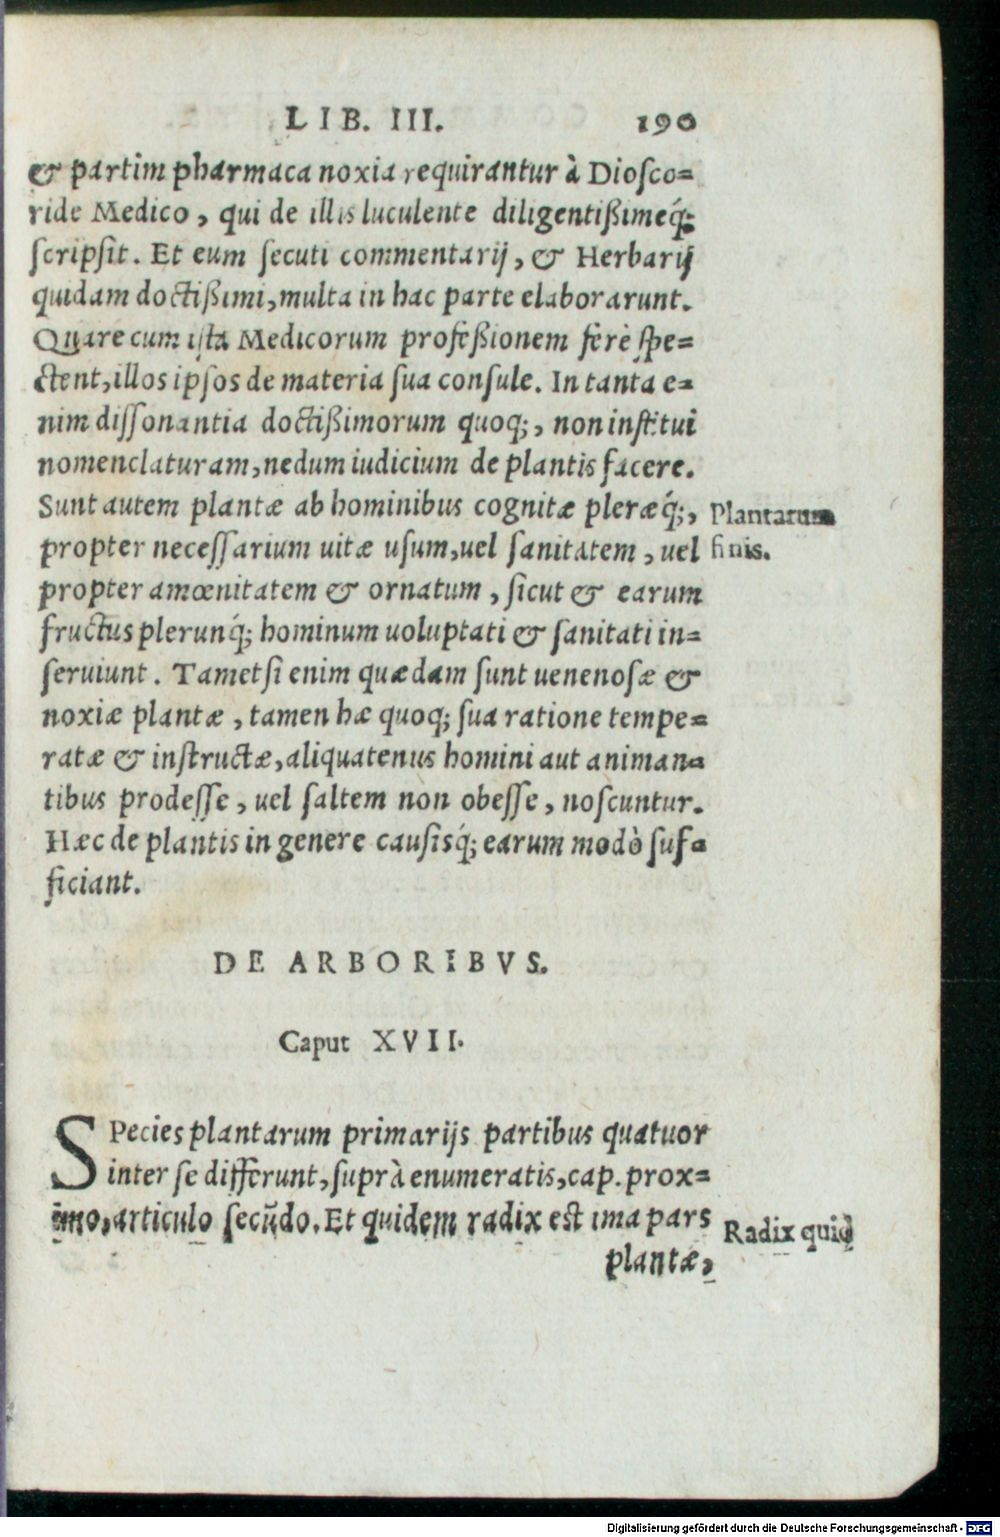 LIB. III. 190
& partim pharmaca noxia requirantur à Dioſco=
ride Medico, qui de illis luculente diligentißimeq́;
ſcripſit. Et eum ſecuti commentarij, & Herbarij
quidam doctißimi, multa in hac parte elaborarunt.
Quare cum iſta Medicorum profeßionem ferè ſpe=
ctent, illos ipſos de materia ſua conſule. In tanta e=
nim diſſonantia doctißimorum quoq;, non inſtitui
nomenclaturam, nedum iudicium de plantis facere.
Sunt autem plantæ ab hominibus cognitæ pleræq́;, Plantarum
propter neceſſarium uitæ uſum, uel ſanitatem, uel finis.
propter amœnitatem & ornatum, ſicut & earum
fructus plerunq́; hominum uoluptati & ſanitati in=
ſeruiunt. Tametſi enim quædam ſunt uenenoſæ &
noxiæ plantæ, tamen hæ quoq; ſua ratione tempe=
ratæ & inſtructæ, aliquatenus homini aut animan=
tibus prodeſſe, uel ſaltem non obeſſe, noſcuntur.
Hæc de plantis in genere cauſisq́; earum modò ſuf=
ficiant.
DE ARBORIBVS.
Caput XVII.
SPecies plantarum primarijs partibus quatuor
inter ſe differunt, ſuprà enumeratis, cap. prox=
imo, articulo ſecũdo. Et quidem radix eſt ima pars Radix quid
plantæ,
Digitalisierung gefördert durch die Deutsche Forschungsgemeinschaft - DFG